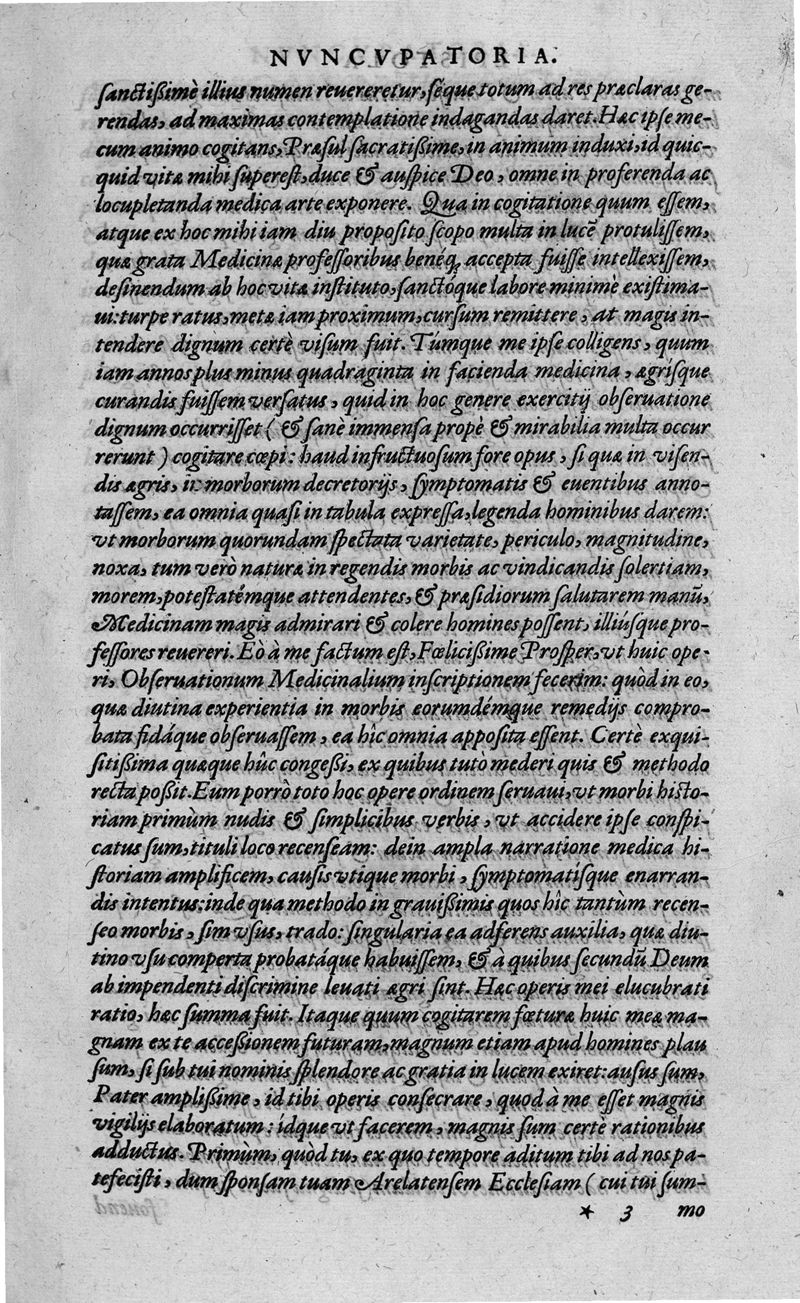 NVNCVPATORIA.
sanctißimè illius numen reuereretur, séque totum ad res præclaras ge-
rendas, ad maximas contemplatione indagandas daret. Hæc ipse me-
cum animo cogitans, Præsul sacratißime, in animum induxi, id quic-
quid vitæ mihi superest, duce & auspice Deo, omne in proferenda ac
locupletanda medica arte exponere. Qua in cogitatione quum essem,
atque ex hoc mihi iam diu proposito scopo multa in lucē protulissem,
quæ grata Medicinæ professoribus benéq; accepta fuisse intellexissem,
desinendum ab hoc vitæ instituto, sanctóque labore minimè existima-
ui: turpe ratus, metæ iam proximum, cursum remittere, at magis in-
tendere dignum certè visum fuit. Túmque me ipse colligens, quum
iam annos plus minus quadraginta in facienda medicina, ægrisque
curandis fuissem versatus, quid in hoc genere exercitij obseruatione
dignum occurrisset ( & sanè immensa propè & mirabilia multa occur
rerunt ) cogitare cœpi: haud infructuosum fore opus, si quæ in visen-
dis ægris, in morborum decretorijs, symptomatis & euentibus anno-
tassem, ea omnia quasi in tabula expressa, legenda hominibus darem:
vt morborum quorundam spectata varietate, periculo, magnitudine,
noxa, tum verò naturæ in regendis morbis ac vindicandis solertiam,
morem, potestatémque attendentes, & præsidiorum salutarem manū,
Medicinam magis admirari & colere homines possent, illiúsque pro-
fessores reuereri. Eò à me factum est, Fœlicißime Prosper, vt huic ope-
ri, Obseruationum Medicinalium inscriptionem fecerim: quòd in eo,
quæ diutina experientia in morbis eorumdémque remedijs compro-
bata fidáque obseruassem, ea hîc omnia apposita essent. Certè exqui-
sitißima quæque hûc congeßi, ex quibus tutò mederi quis & methodo
recta poßit. Eum porrò toto hoc opere ordinem seruaui, vt morbi histo-
riam primùm nudis & simplicibus verbis, vt accidere ipse conspi-
catus sum, tituli loco recenseam: dein ampla narratione medica hi-
storiam amplificem, causis vtique morbi, symptomatísque enarran-
dis intentus: inde qua methodo in grauißimis quos hîc tantùm recen-
seo morbis, sim vsus, trado: singularia ea adferens auxilia, quæ diu-
tino vsu comperta probatáque habuissem, & à quibus secundū Deum
ab impendenti discrimine leuati ægri sint. Hæc operis mei elucubrati
ratio, hæc summa fuit. Itaque quum cogitarem fœturæ huic meæ ma-
gnam ex te acceßionem futuram, magnum etiam apud homines plau
sum, si sub tui nominis splendore ac gratia in lucem exiret: ausus sum,
Pater amplißime, id tibi operis consecrare, quod à me esset magnis
vigilijs elaboratum: idque vt facerem, magnis sum certè rationibus
adductus. Primùm, quòd tu, ex quo tempore aditum tibi ad nos pa-
tefecisti, dum sponsam tuam Arelatensem Ecclesiam ( cui tui sum-
* 3 mo